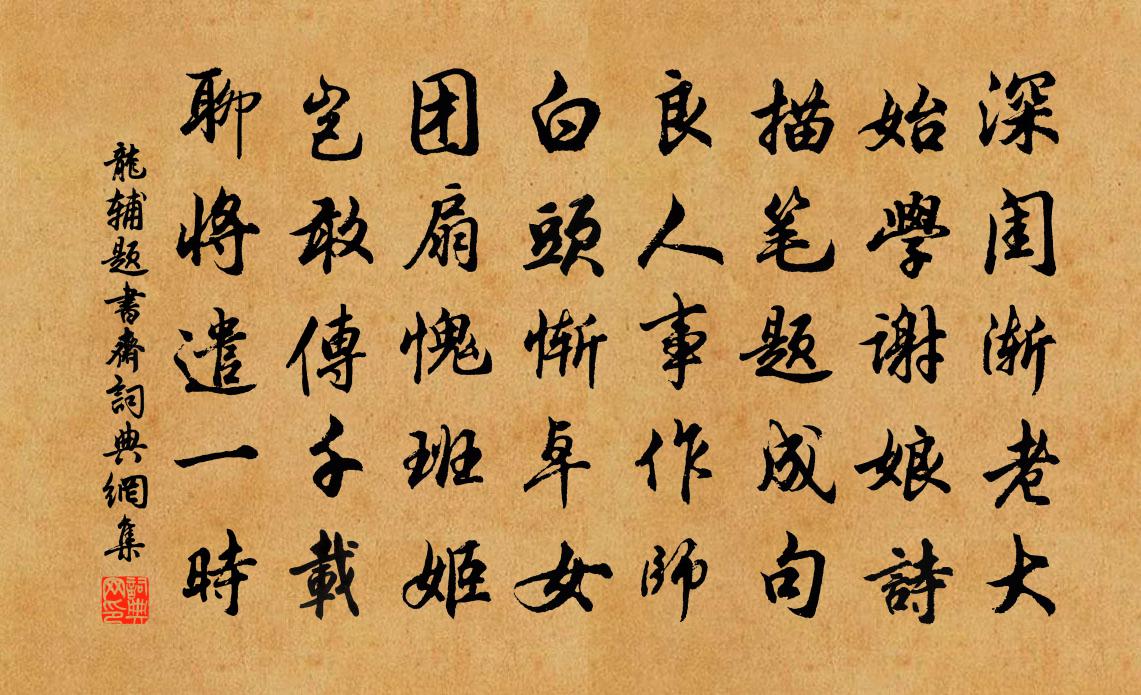 深闺渐老大
始學谢娘詩
描笔题成句
良人事作师
白頭惭卓女
团扇愧班姬
岂敢傳千載
聊将遣一時
龍辅题書齋詞典網集
詞典网印